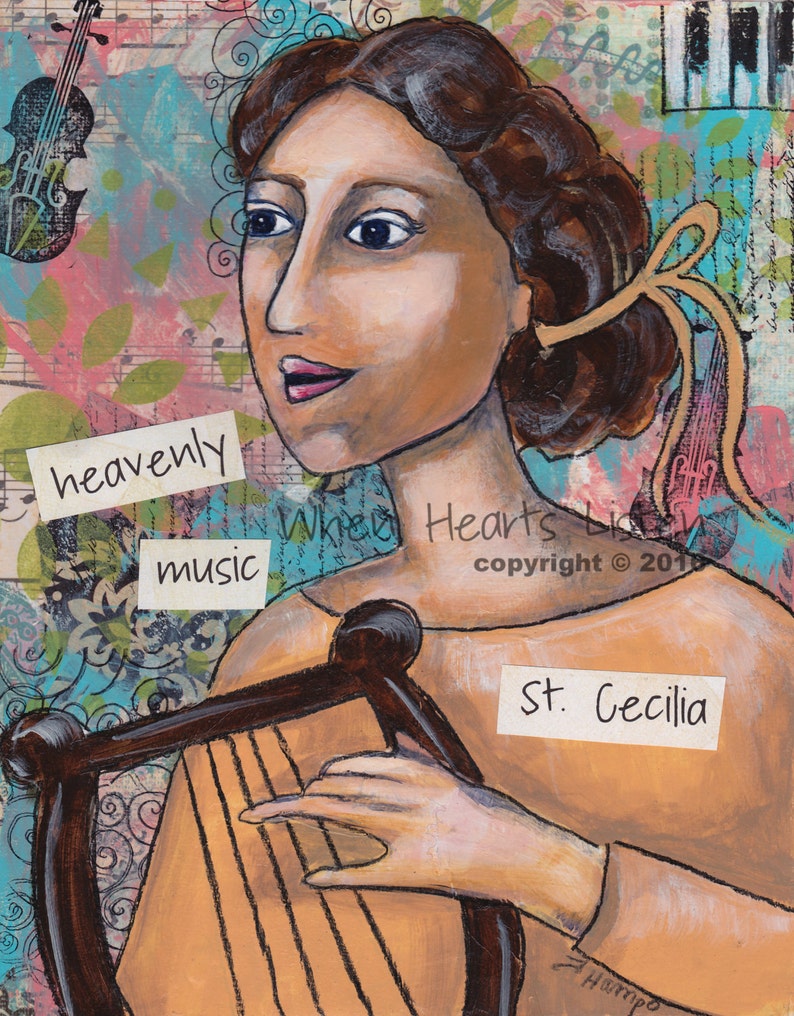 heavenly
When Hearts Listen
music
copyright © 2016
St. Cecilia